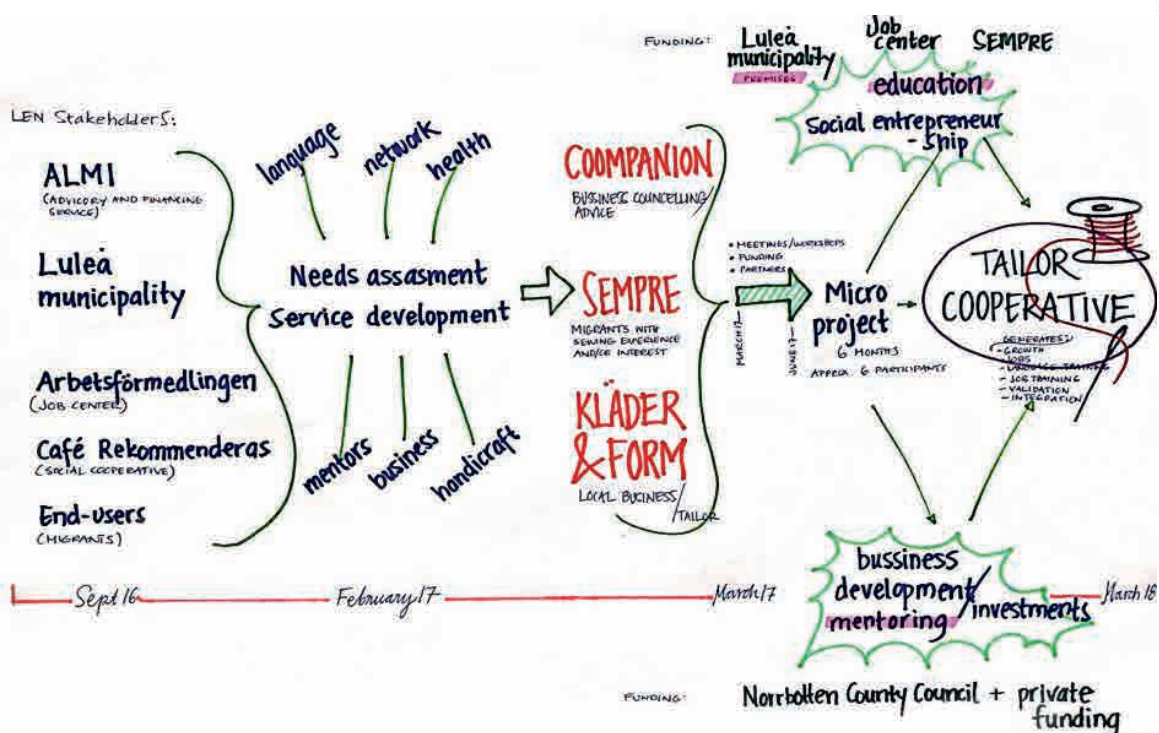 FUNDING:
Luleå
municipality
PREMISES
Job
center
SEMPRE
education
Social entrepreneur
- ship
LEN Stakeholders:
ALMI
(ADVISORY AND FINANCING
SERVICE)
Luleå
municipality
Arbetsförmedlingen
(JOB CENTER)
Café Rekommenderas
(SOCIAL COOPERATIVE)
End-users
(MIGRANTS)
language
network
health
Needs assasment
Service development
mentors
business
handicraft
COOMPANION
BUSSINESS COUNCELLING/
ADVICE
SEMPRE
MIGRANTS WITH
SEWING EXPERIENCE
AND/OR INTEREST
KLÄDER
& FORM
LOCAL BUSINESS/
TAILOR
• MEETINGS/WORKSHOPS
• FUNDING
• PARTNERS
MARCH 17
JUNE 17
Micro
project
6 MONTHS
APPROX. 6 PARTICIPANTS
TAILOR
COOPERATIVE
GENERATES:
- GROWTH
- JOBS
- LANGUAGE TRAINING
- JOB TRAINING
- VALIDATION
- INTEGRATION
bussiness
development/
mentoring
investments
Sept 16
February 17
March 17
March 18
FUNDING:
Norrbotten County Council + private
funding